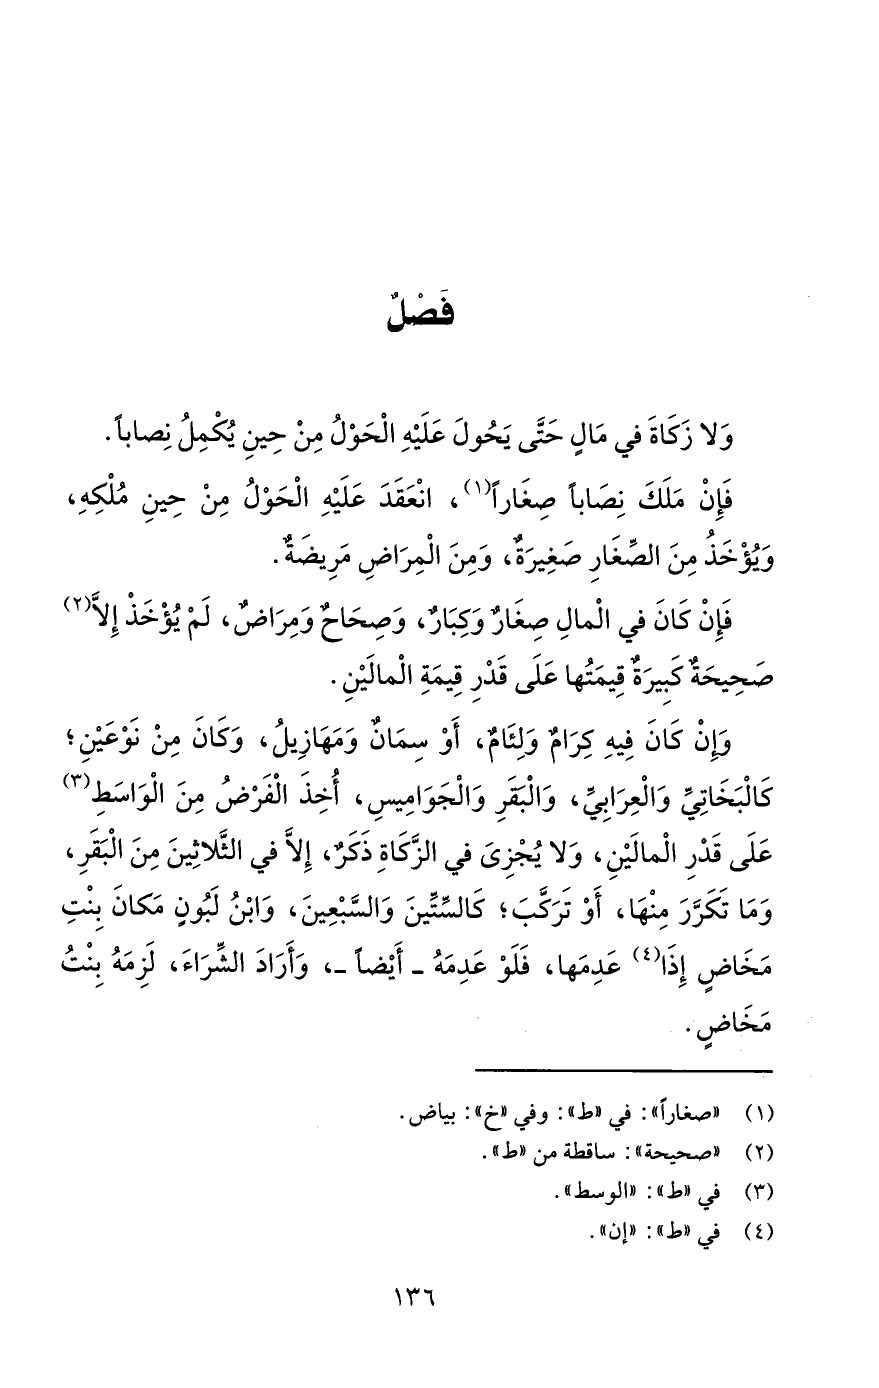 فَصْلٌ
وَلا زَكَاةَ في مَالٍ حَتَّى يَحُولَ عَلَيْهِ الْحَوْلُ مِنْ حِينِ يُكْمِلُ نِصاباً.
فَإِنْ مَلَكَ نِصَاباً صِغَاراً(١)، انْعَقَدَ عَلَيْهِ الْحَوْلُ مِنْ حِينِ مُلْكِهِ،
وَيُؤْخَذُ مِنَ الصِّغَارِ صَغِيرَةٌ، وَمِنَ الْمِرَاضِ مَرِيضَةٌ.
فَإِنْ كَانَ في الْمالِ صِغَارٌ وَكِبَارٌ، وَصِحَاحٌ وَمِرَاضٌ، لَمْ يُؤْخَذْ إِلاَّ(٢)
صَحِيحَةٌ كَبِيرَةٌ قِيمَتُها عَلَى قَدْرِ قِيمَةِ الْمالَيْنِ.
وَإِنْ كَانَ فِيهِ كِرَامٌ وَلِئَامٌ، أَوْ سِمَانٌ وَمَهَازِيلُ، وَكَانَ مِنْ نَوْعَيْنِ؛
كَالْبَخَاتِيِّ وَالْعِرَابِيِّ، وَالْبَقَرِ وَالْجَوَامِيسِ، أُخِذَ الْفَرْضُ مِنَ الْوَاسَطِ(٣)
عَلَى قَدْرِ الْمالَيْنِ، وَلا يُجْزِىَ في الزَّكَاةِ ذَكَرٌ، إِلاَّ في الثَّلاثِينَ مِنَ الْبَقَرِ،
وَمَا تَكَرَّرَ مِنْهَا، أَوْ تَرَكَّبَ؛ كَالسِّتِّينَ وَالسَّبْعِينَ، وَابْنُ لَبُونٍ مَكانَ بِنْتِ
مَخَاضٍ إِذَا(٤) عَدِمَها، فَلَوْ عَدِمَهُ ـ أَيْضاً ـ، وَأَرَادَ الشِّرَاءَ، لَزِمَهُ بِنْتُ
مَخَاضٍ.
(١) «صغاراً»: في «ط»: وفي «خ»: بياض.
(٢) «صحيحة»: ساقطة من «ط».
(٣) في «ط»: «الوسط».
(٤) في «ط»: «إن».
١٣٦